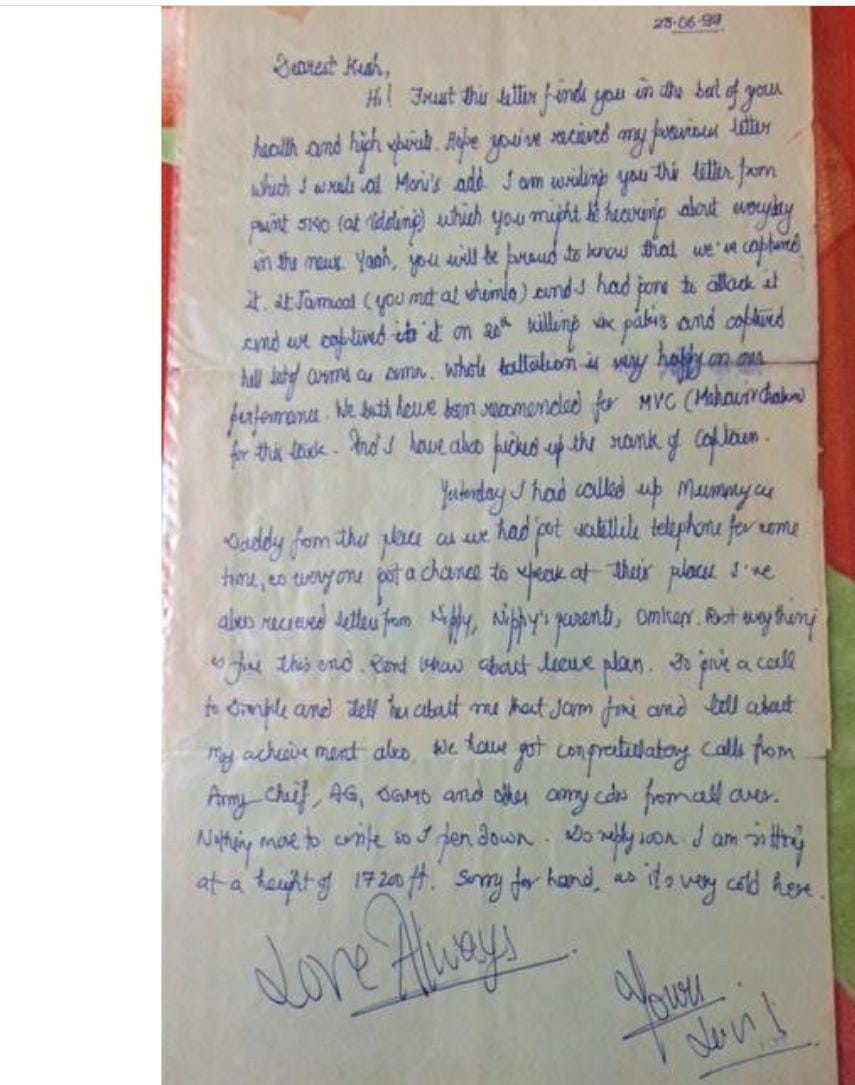 23-06-99
Dearest Kush,
Hi! Trust this letter finds you in the best of your
health and high spirits. Hope you've recieved my previous letter
which I wrote at Moni's add. I am writing you this letter from
point 5140 (at Tololing) which you might be hearing about everyday
in the news. Yeah, you will be proud to know that we've captured
it. Lt Jamwal (you met at shimla) and I had gone to attack it
and we captured it on 20th killing six pakis and captured
hell lot of arms & amn. Whole battalion is very happy on our
performance. We both have been recomended for MVC (Mahavir Chakra)
for this task. And I have also picked up the rank of Captain.
Yesterday I had called up Mummy &
Daddy from this place as we had got satellite telephone for some
time, so everyone got a chance to speak at their places I've
also recieved letters from Nippy, Nippy's parents, Omker. Rest everything
is fine this end. Dont know about leave plan. Do give a call
to Dimple and tell her about me that I am fine and tell about
my achievement also. We have got congratulatory calls from
Army Chief, AG, DGMO and other army cdrs from all over.
Nothing more to write so I pen down. Do reply soon. I am sitting
at a height of 17200 ft. Sorry for hand, as it's very cold here.
Love Always
Yours